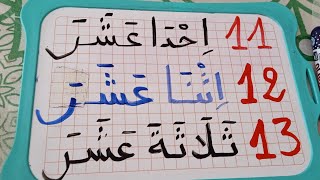 11 اِحْدَا عَشَرَ
12 اِثْنَا عَشَرَ
13 ثَلَاثَةَ عَشَرَ